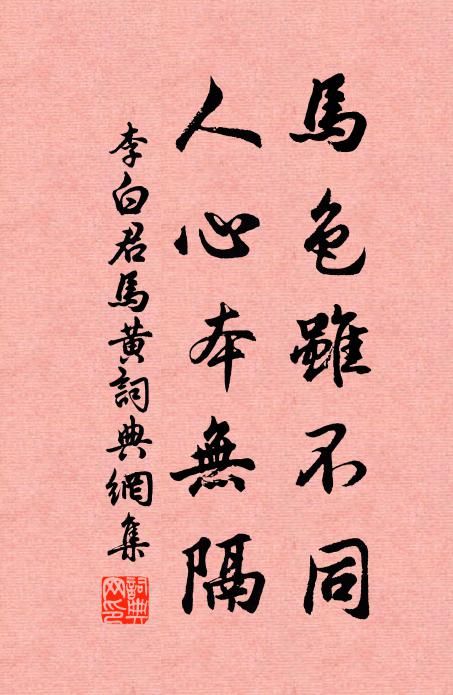 馬色雖不同
人心本無隔
李白君馬黃詞典網集
詞典
网印